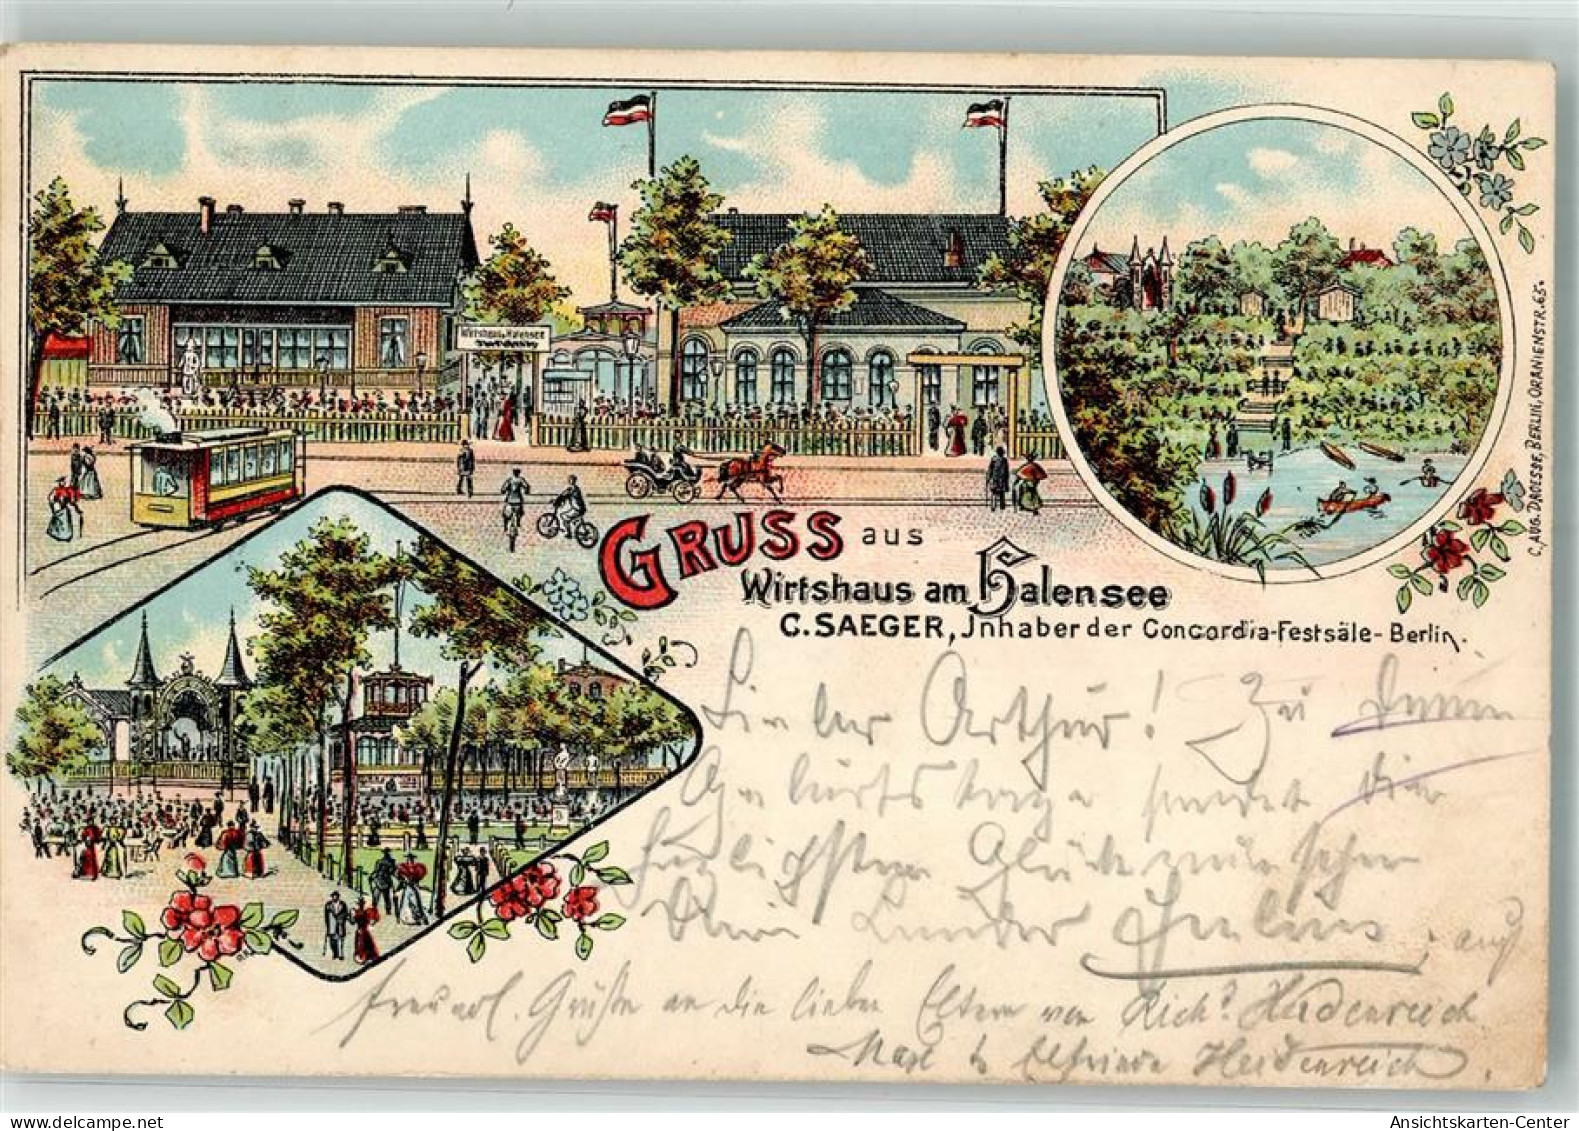 Wirtshaus a. Halensee
GRUSS aus
Wirtshaus am Halensee
C. SAEGER, Jnhaber der Concordia-Festsäle-Berlin.
C. AUG. DROESSE, BERLIN, ORANIENSTR. 65.
Lieber Arthur! Zu Deinem
Geburtstage sendet Dir
herzlichsten Glückwünsche
Dein Bruder Julius, auch
freundl. Grüße an die lieben Eltern von Rich. Heidenreich
Elfriede Heidenreich.
delcampe.net
Ansichtskarten-Center